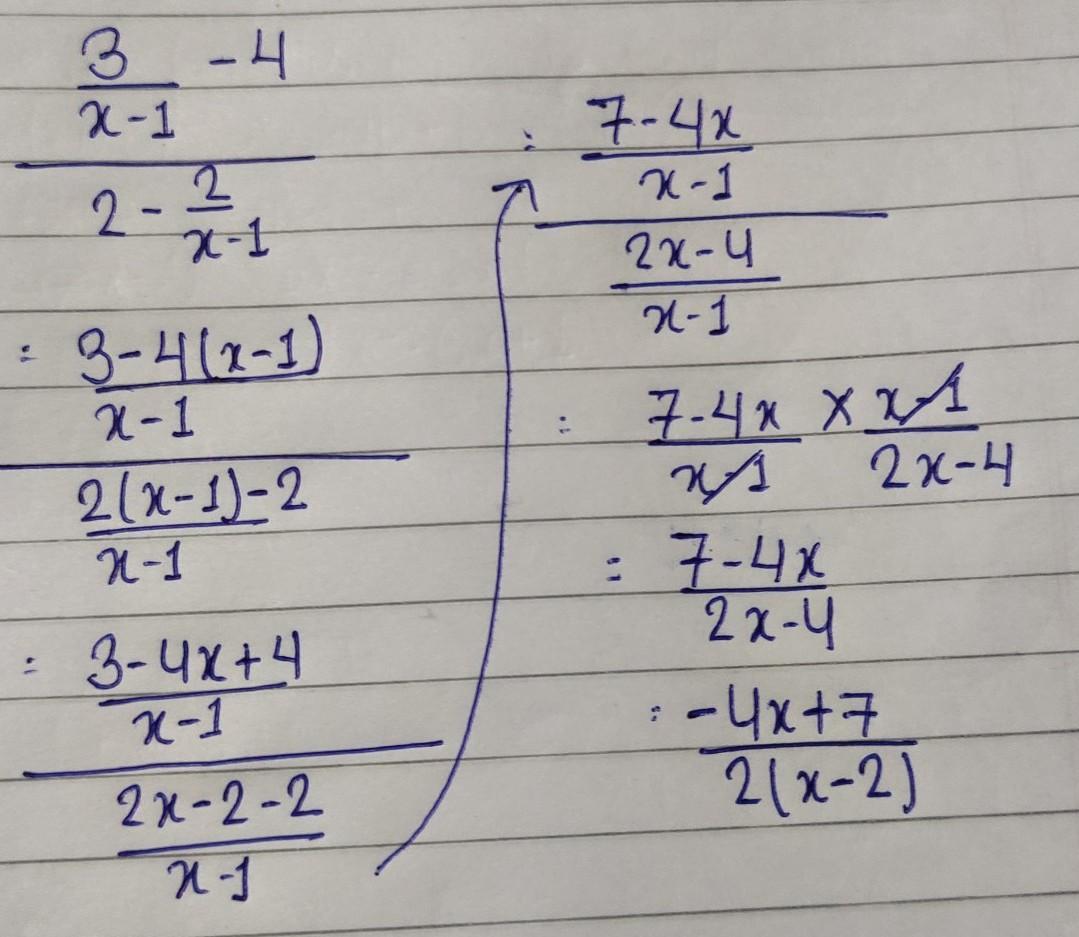 3 - 4
x - 1
2 - 2
x - 1
= 3 - 4(x - 1)
x - 1
2(x - 1) - 2
x - 1
= 3 - 4x + 4
x - 1
2x - 2 - 2
x - 1
= 7 - 4x
x - 1
2x - 4
x - 1
= 7 - 4x × x - 1
x - 1 2x - 4
= 7 - 4x
2x - 4
= -4x + 7
2(x - 2)